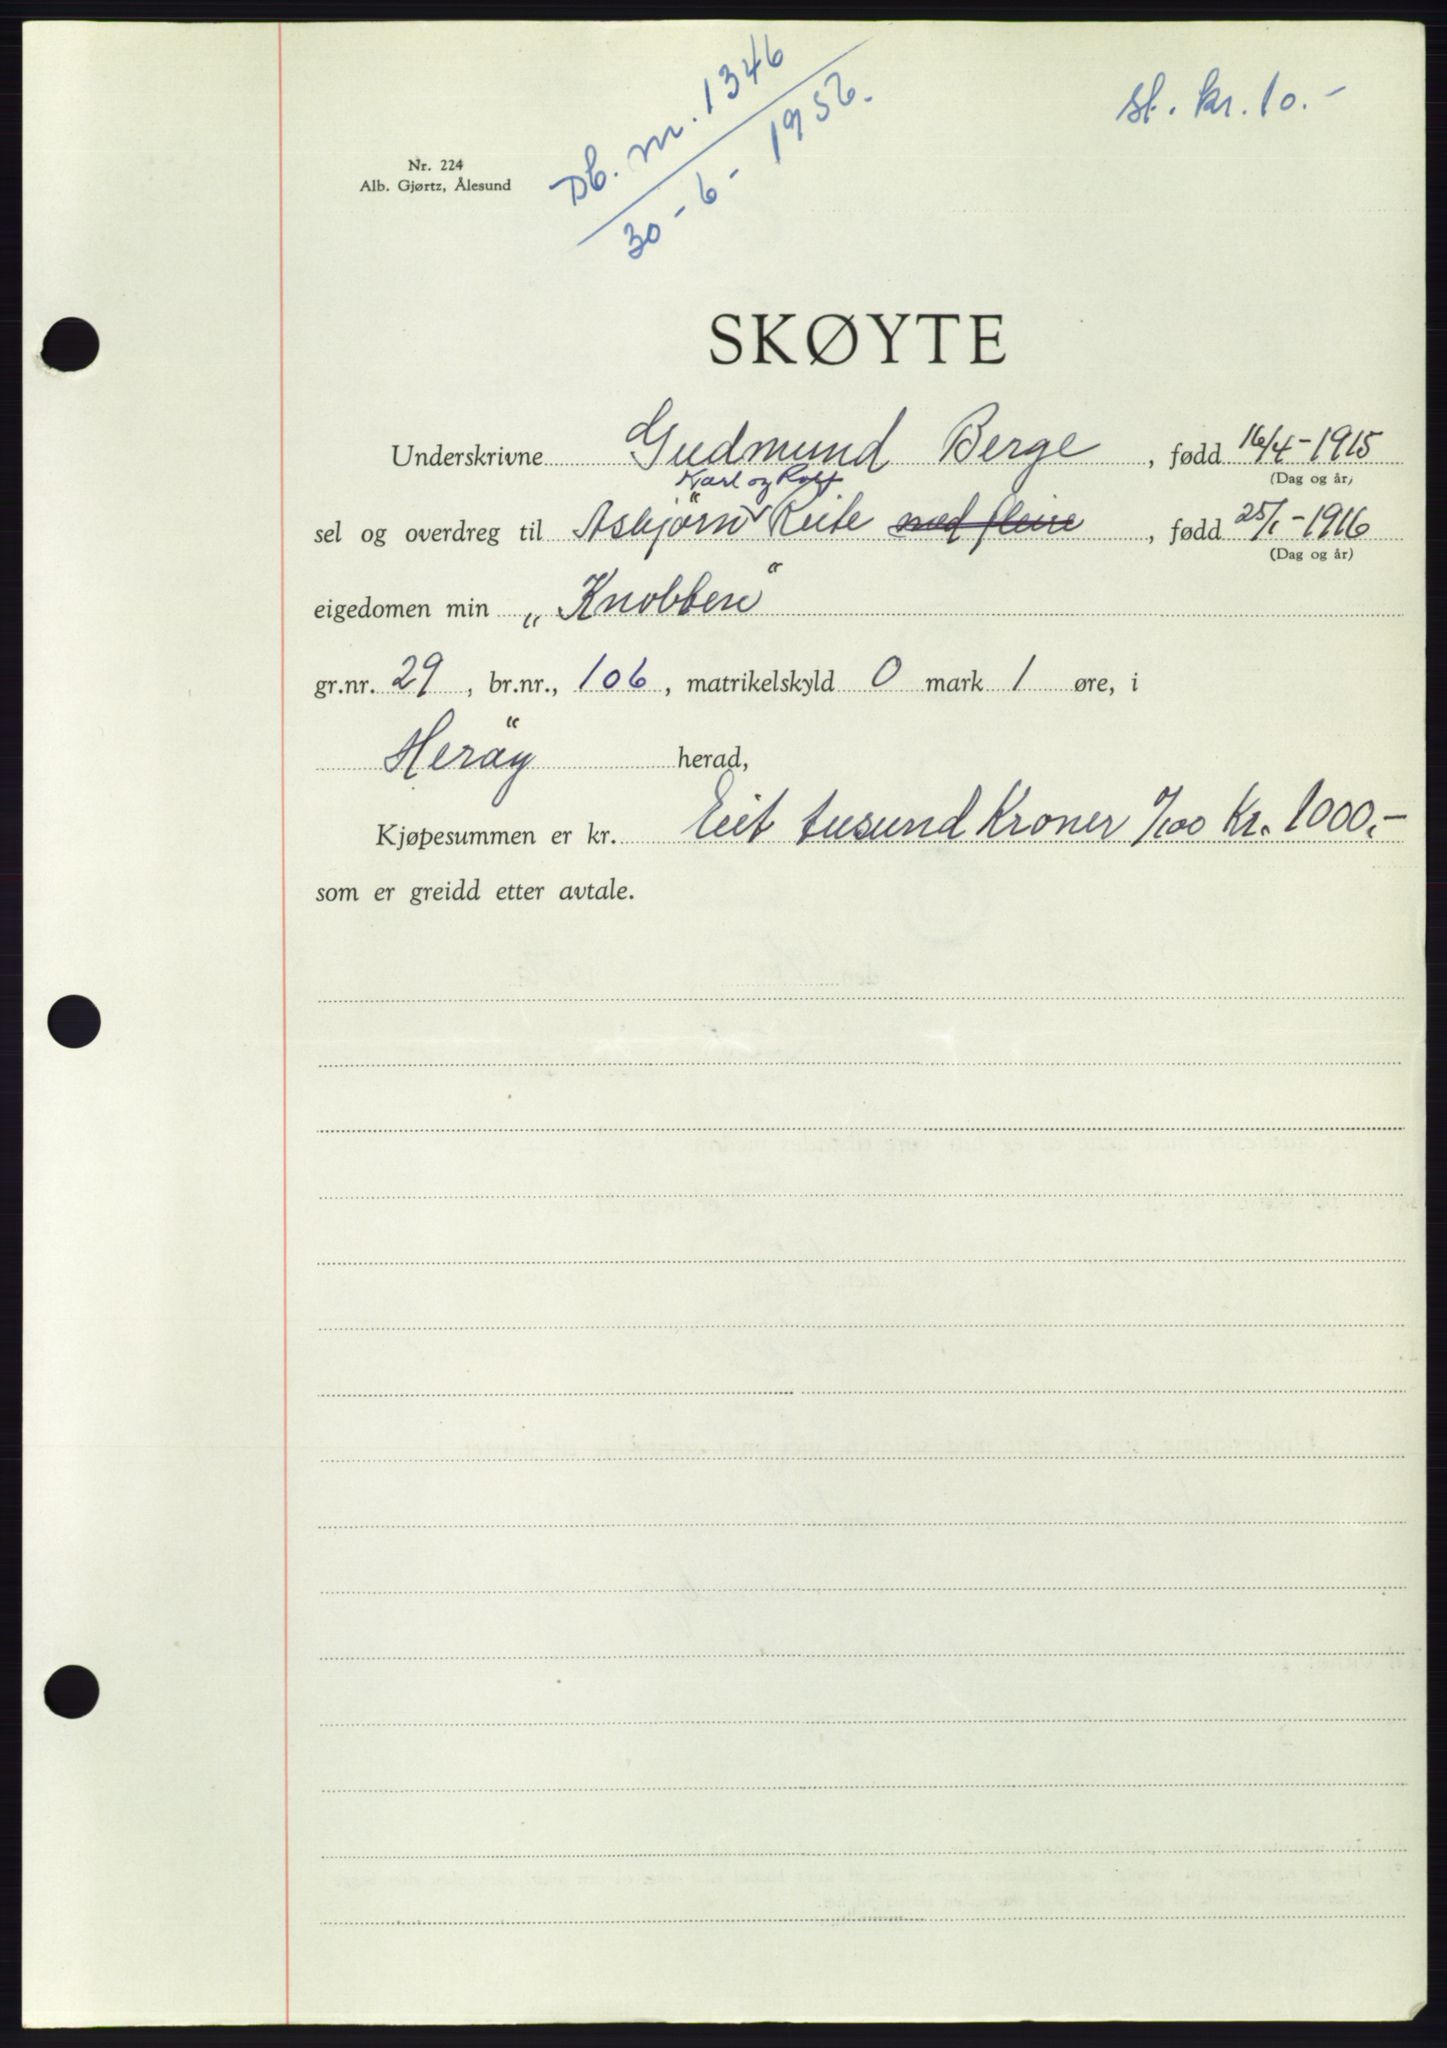 Db. nr. 1346
30-6-1952.
st. kr. 10.-
Nr. 224
Alb. Gjørtz, Ålesund
SKØYTE
Underskrivne Gudmund Berge, fødd 16/4-1915
(Dag og år)
Karl og Rolf
sel og overdreg til Asbjørn Reite med fleire, fødd 25/1-1916
(Dag og år)
eigedomen min „Knobben“
gr.nr. 29, br.nr., 106, matrikelskyld 0 mark 1 øre, i
Herøy herad,
Kjøpesummen er kr. Eit tusund Kroner 0/100 Kr. 1000.-
som er greidd etter avtale.